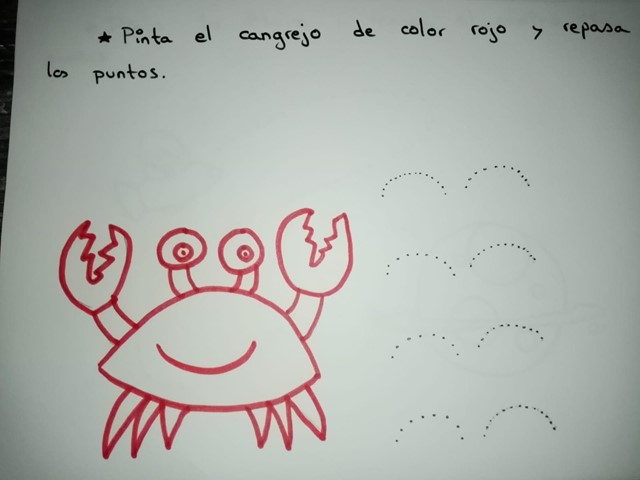 ★ Pinta el cangrejo de color rojo y repasa
los puntos.